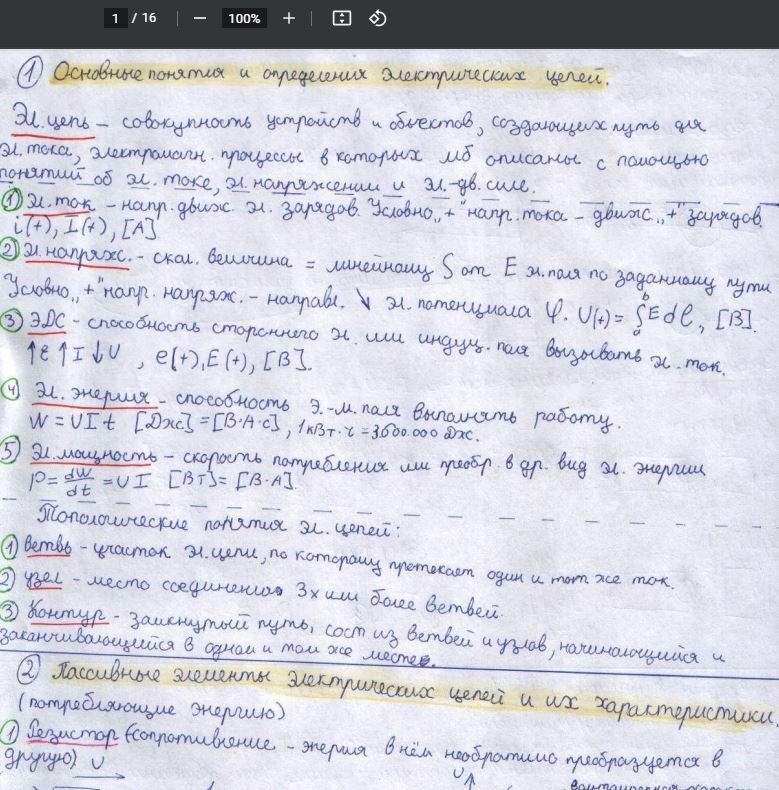 1 / 16 100%
① Основные понятия и определения электрических цепей.
Эл. цепь – совокупность устройств и объектов, создающих путь для
эл. тока, электромагн. процессы в которых мб описаны с помощью
понятий об эл. токе, эл. напряжении и эл.-дв. силе.
① Эл. ток – напр. движ. эл. зарядов. Условно „+“ напр. тока – движ. „+“ зарядов.
i(t), I(t), [A]
② Эл. напряж. – скал. величина = линейному ∫ от E эл. поля по заданному пути
Условно „+“ напр. напряж. – направл. ↘ эл. потенциала φ. U(t) = ∫ₐᵇ E dl, [В].
③ ЭДС – способность стороннего эл. или индуц. поля вызывать эл. ток.
↑ε ↑I ↓U, e(t), E(t), [В].
④ Эл. энергия – способность э.-м. поля выполнять работу.
W = UIt [Дж] = [В·А·с], 1 кВт·ч = 3.600.000 Дж.
⑤ Эл. мощность – скорость потребления или преобр. в др. вид эл. энергии
P = dW/dt = UI [Вт] = [В·А]
Топологические понятия эл. цепей:
① Ветвь – участок эл. цепи, по которому протекает один и тот же ток.
② Узел – место соединения 3х или более ветвей.
③ Контур – замкнутый путь, сост из ветвей и узлов, начинающийся и
заканчивающейся в одном и том же месте.
② Пассивные элементы электрических цепей и их характеристики.
(потребляющие энергию)
① Резистор (сопротивление – энергия в нём необратимо преобразуется в
другую) U
U↑